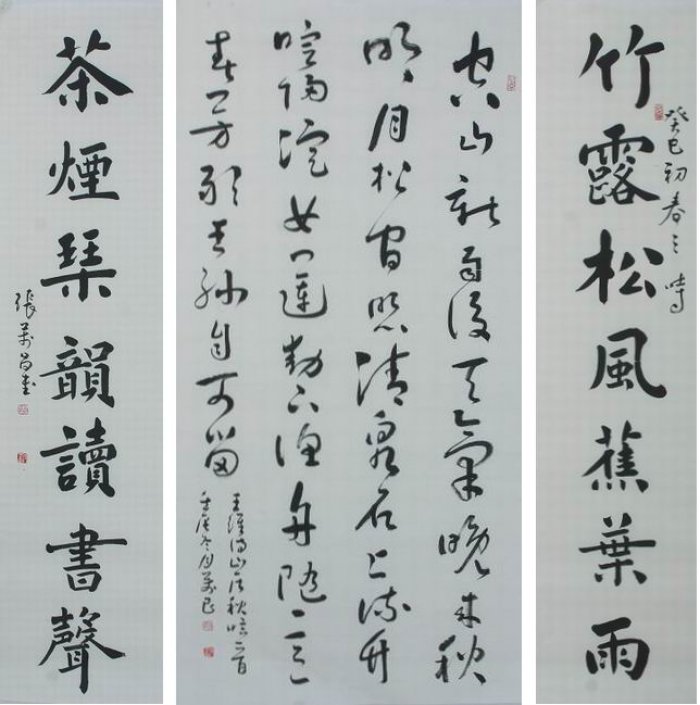 竹露松風蕉葉雨
癸巳初春之時
空山新雨後天氣晚來秋
明月松間照清泉石上流竹
喧歸浣女蓮動下漁舟隨意
春芳歇王孫自可留
王維詩山居秋暝一首
壬辰冬月萬昌
茶煙琹韻讀書聲
張萬昌書